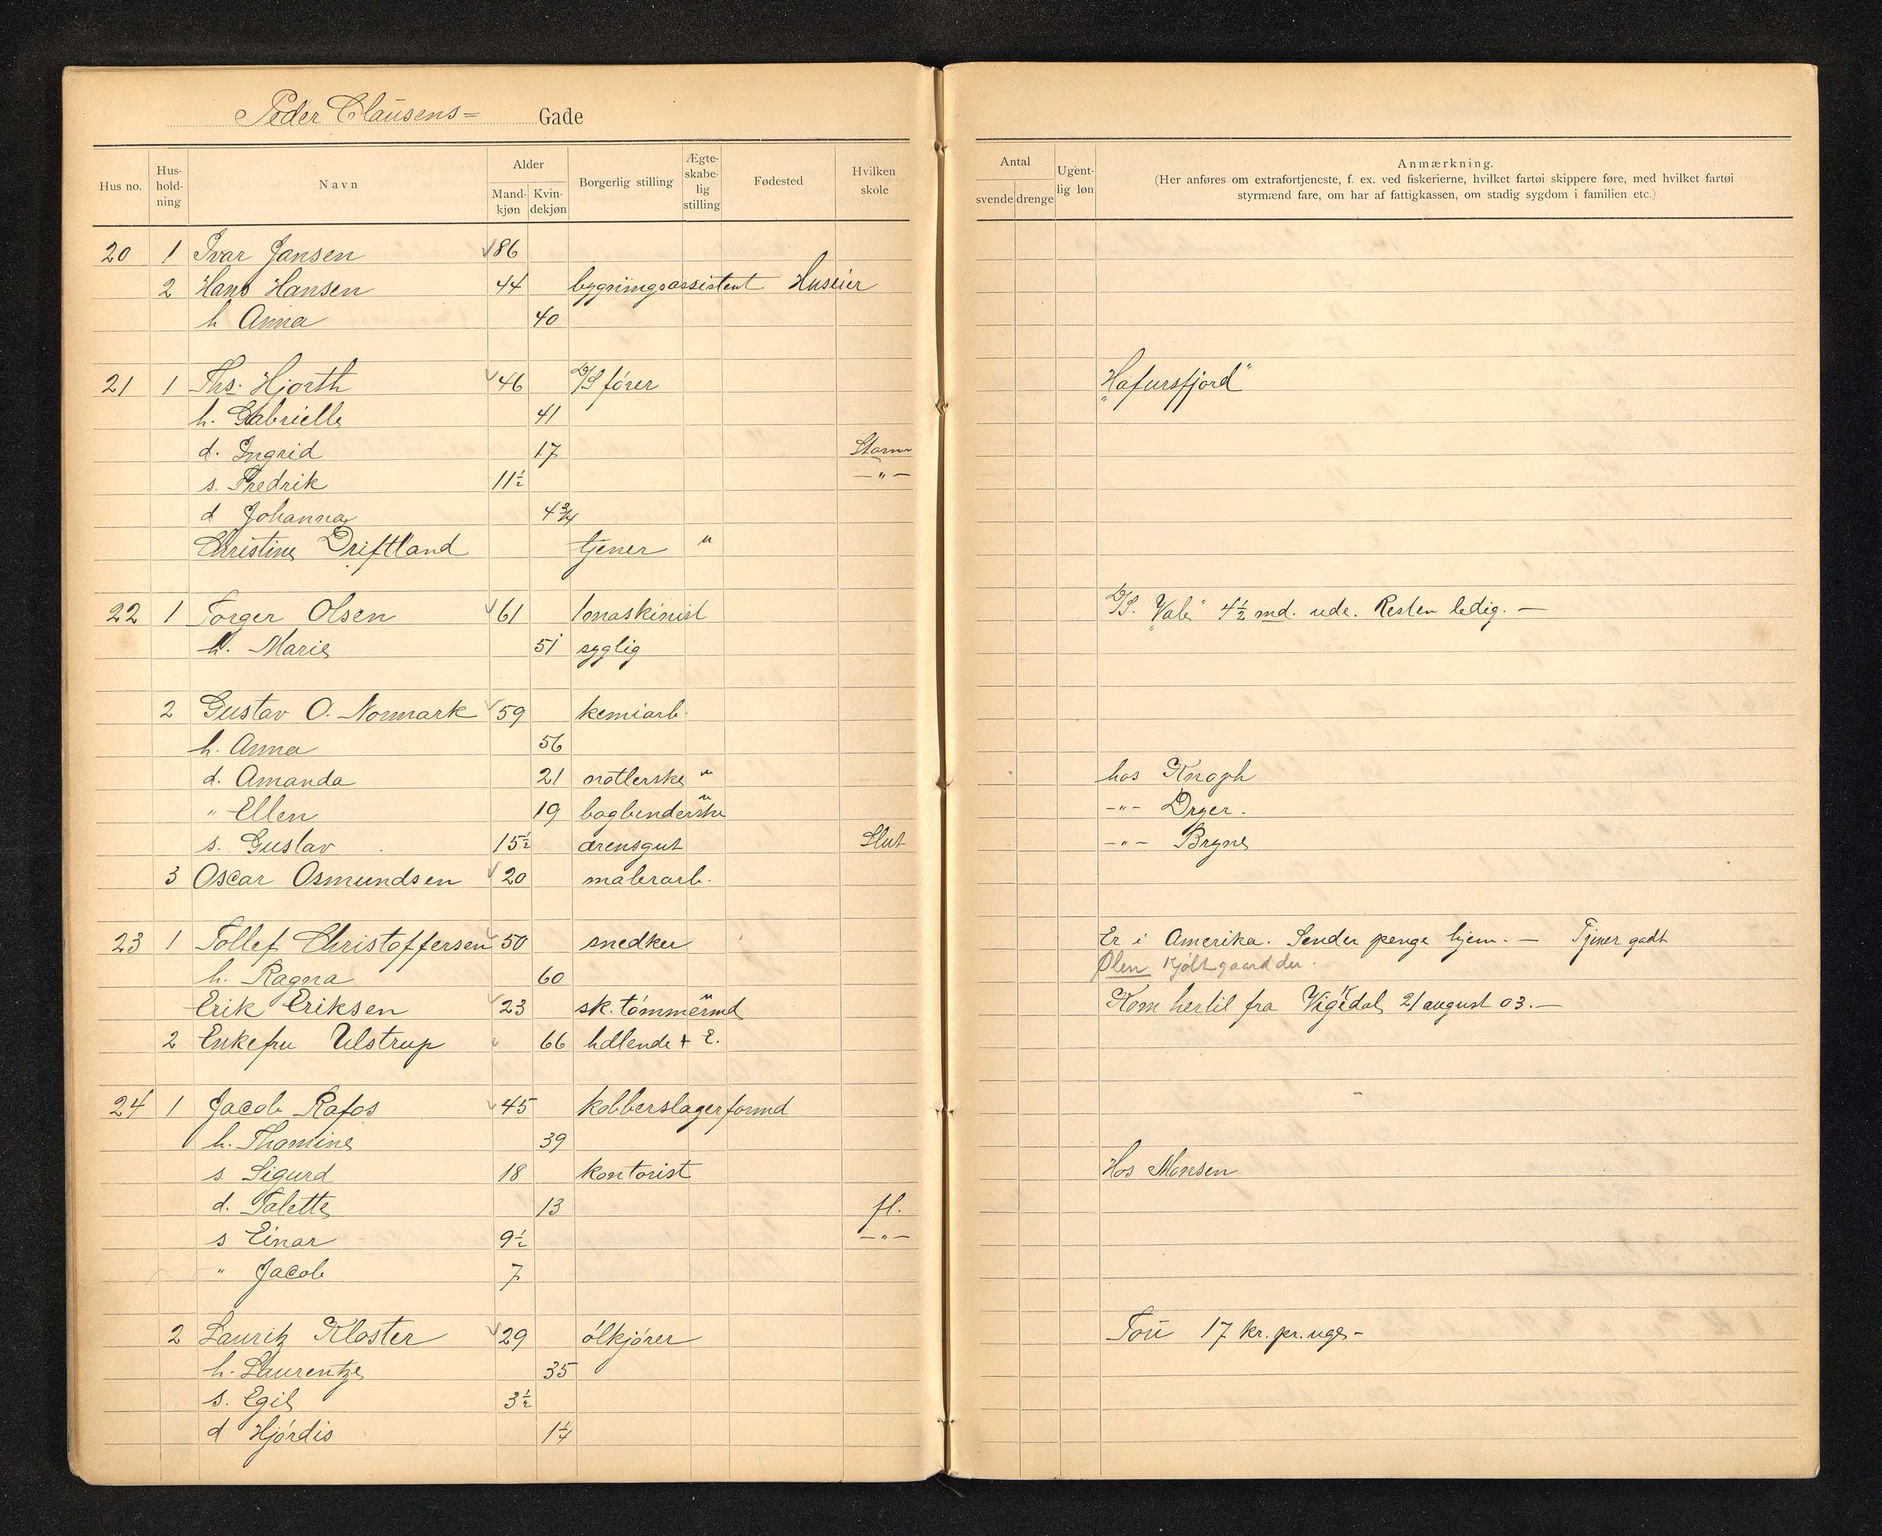 Peder Clausens= Gade
Hus no. Hus-hold-ning Navn Alder Mand-kjøn Kvin-dekjøn Borgerlig stilling Ægte-skabe-lig stilling Fødested Hvilken skole Antal svende drenge Ugent-lig løn Anmærkning.
(Her anføres om extrafortjeneste, f. ex. ved fiskerierne, hvilket fartøi skippere føre, med hvilket fartøi
styrmænd fare, om har af fattigkassen, om stadig sygdom i familien etc.)
20 1 Ivar Jansen 86
2 Hans Hansen 44 bygningsassistent Huseier
h Anna 40
21 1 Ths. Hjorth 46 D/S fører "Hafursfjord"
h. Gabrielle 41
d. Ingrid 17 Storm
s. Fredrik 11½ —"—
d Johanna 4¾
Christine Driftland tjener u
22 1 Torger Olsen 61 1maskinist D/S. "Vale" 4½ md. ude. Resten ledig. —
h. Marie 51 syglig
2 Gustav O. Normark 59 kemiarb.
h. Anna 56
d. Amanda 21 notlerske u hos Knoph
" Ellen 19 bogbinderske u —"— Dreyer.
s. Gustav 15½ ærensgut Slut —"— Bryne
3 Oscar Osmundsen 20 malerarb.
23 1 Tollef Christoffersen 50 snedker Er i Amerika. Sender penge hjem. — Tjener godt
h. Ragna 60 Ølen kjøbt gaard der.
Erik Eriksen 23 sk. tømmermd u Kom hertil fra Vigedal 21 august 03. —
2 Enkefru Ulstrup 66 hdlende + E.
24 1 Jacob Rafos 45 kobberslagerformd
h. Thomine 39
s. Sigurd 18 kontorist Hos Monsen
d. Talette 13 fl.
s Einar 9½ —"—
" Jacob 7
2 Lauritz Kloster 29 ølkjører Tou 17 kr. pr. uge -
h. Laurentze 35
s. Egil 3½
d Hjørdis 1¼